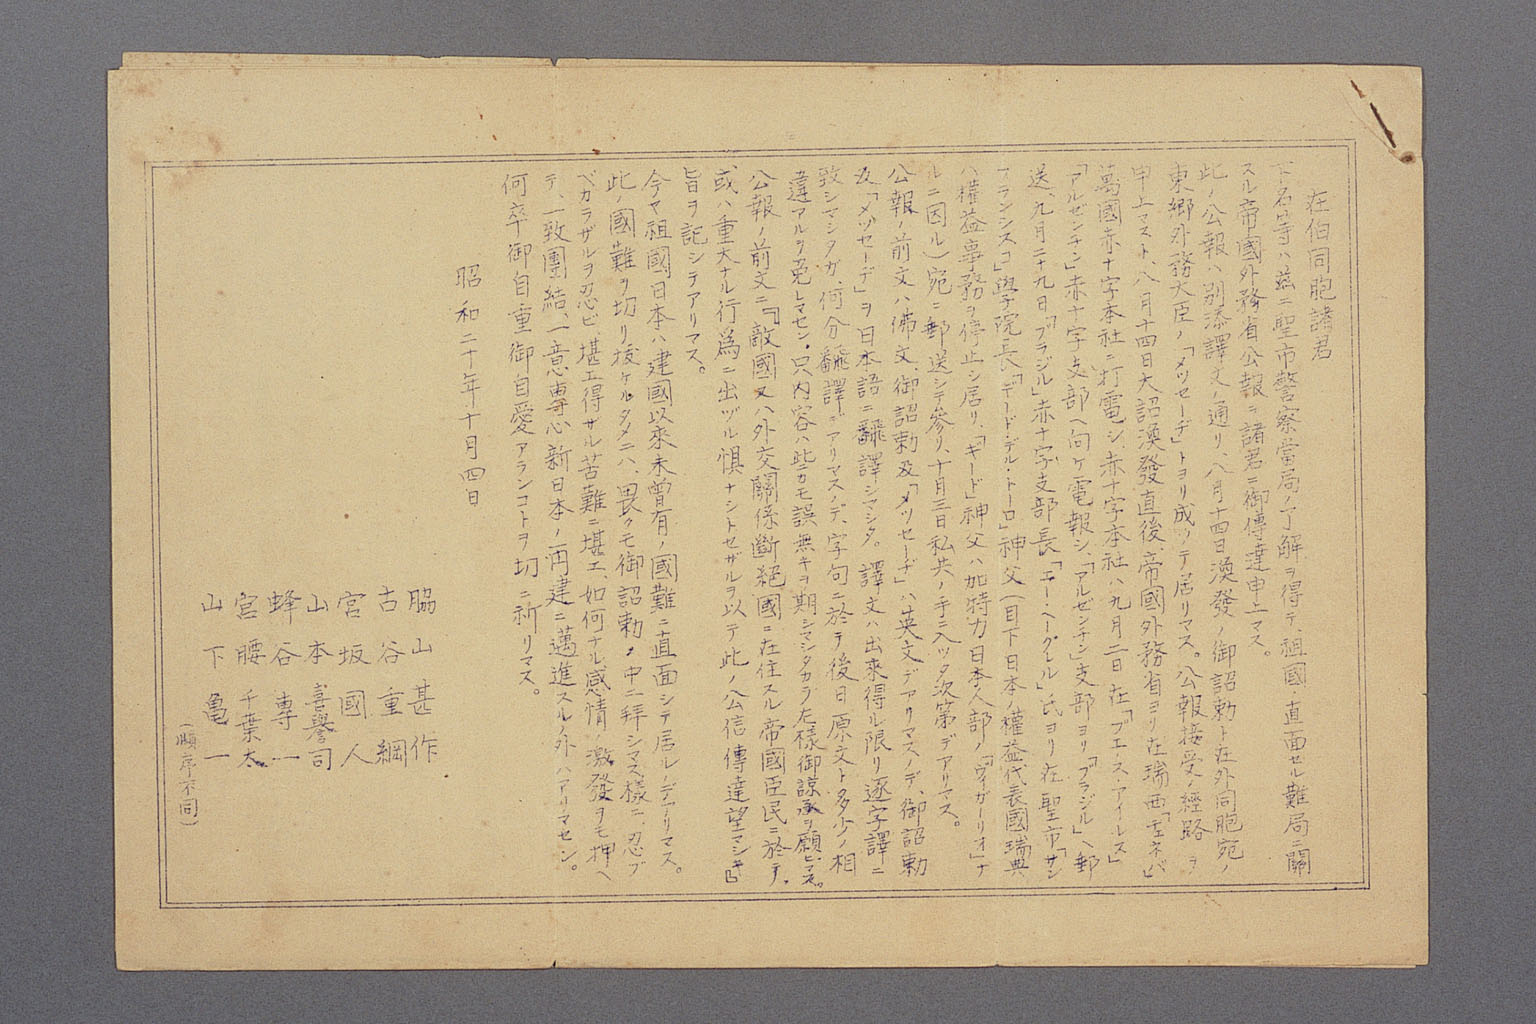 在伯同胞諸君
下名等ハ茲ニ聖市警察當局ノ了解ヲ得テ祖國ノ直面セル難局ニ關
スル帝國外務省公報ヲ諸君ニ御傳達申上マス。
此ノ公報ハ別添譯文ノ通リ、八月十四日渙發ノ御詔勅ト在外同胞宛ノ
東郷外務大臣ノ「メッセーヂ」トヨリ成ッテ居リマス。公報接受ノ經路ヲ
申上マスト、八月十四日大詔渙發直後、帝國外務省ヨリ在瑞西「ヂュネバ」
萬國赤十字本社ニ打電シ、赤十字本社ハ九月二日在「ブエノス・アイレス」
「アルゼンチン」赤十字支部ヘ向ケ電報シ、「アルゼンチン」支部ヨリ「ブラジル」ヘ郵
送、九月二十九日「ブラジル」赤十字支部長「エー・ヘーグレル」氏ヨリ在聖市「サン
フランシスコ」學院長「ギード・デル・トーロ」神父(目下日本ノ權益代表國瑞典
ハ權益事務ヲ停止シ居リ、「ギード」神父ハ加特力日本人部ノ「ヴィガーリオ」ナ
ルニ因ル)宛ニ郵送シテ參リ、十月三日私共ノ手ニ入ッタ次第デアリマス。
公報ノ前文ハ佛文、御詔勅及「メッセーヂ」ハ英文デアリマスノデ、御詔勅
及「メッセーヂ」ヲ日本語ニ飜譯シマシタ。譯文ハ出來得ル限リ逐字譯ニ
致シマシタガ、何分飜譯デアリマスノデ、字句ニ於テ後日原文ト多少ノ相
違アルヲ免レマセン。只内容ハ些カモ誤無キヲ期シマシタカラ左樣御諒承ヲ願ヒマス。
公報ノ前文ニ『敵國又ハ外交關係斷絕國ニ在住スル帝國臣民ニ於テ、
或ハ重大ナル行爲ニ出ヅル惧ナシトセザルヲ以テ此ノ公信傳達望マシキ』
旨ヲ記シテアリマス。
今ヤ祖國日本ハ建國以來未曾有ノ國難ニ直面シテ居ルノデアリマス。
此ノ國難ヲ切リ拔ケルタメニハ、畏クモ御詔勅ノ中ニ拜シマス樣ニ、忍ブ
ベカラザルヲ忍ビ、堪エ得ザル苦難ニ堪エ、如何ナル感情ノ激發ヲモ押ヘ
テ、一致團結、一意專心新日本ノ再建ニ邁進スルノ外ハアリマセン。
何卒御自重御自愛アランコトヲ切ニ祈リマス。
昭和二十年十月四日
脇山甚作
古谷重綱
宮坂國人
山本喜譽司
蜂谷專一
宮腰千葉太
山下亀一
(順序不同)